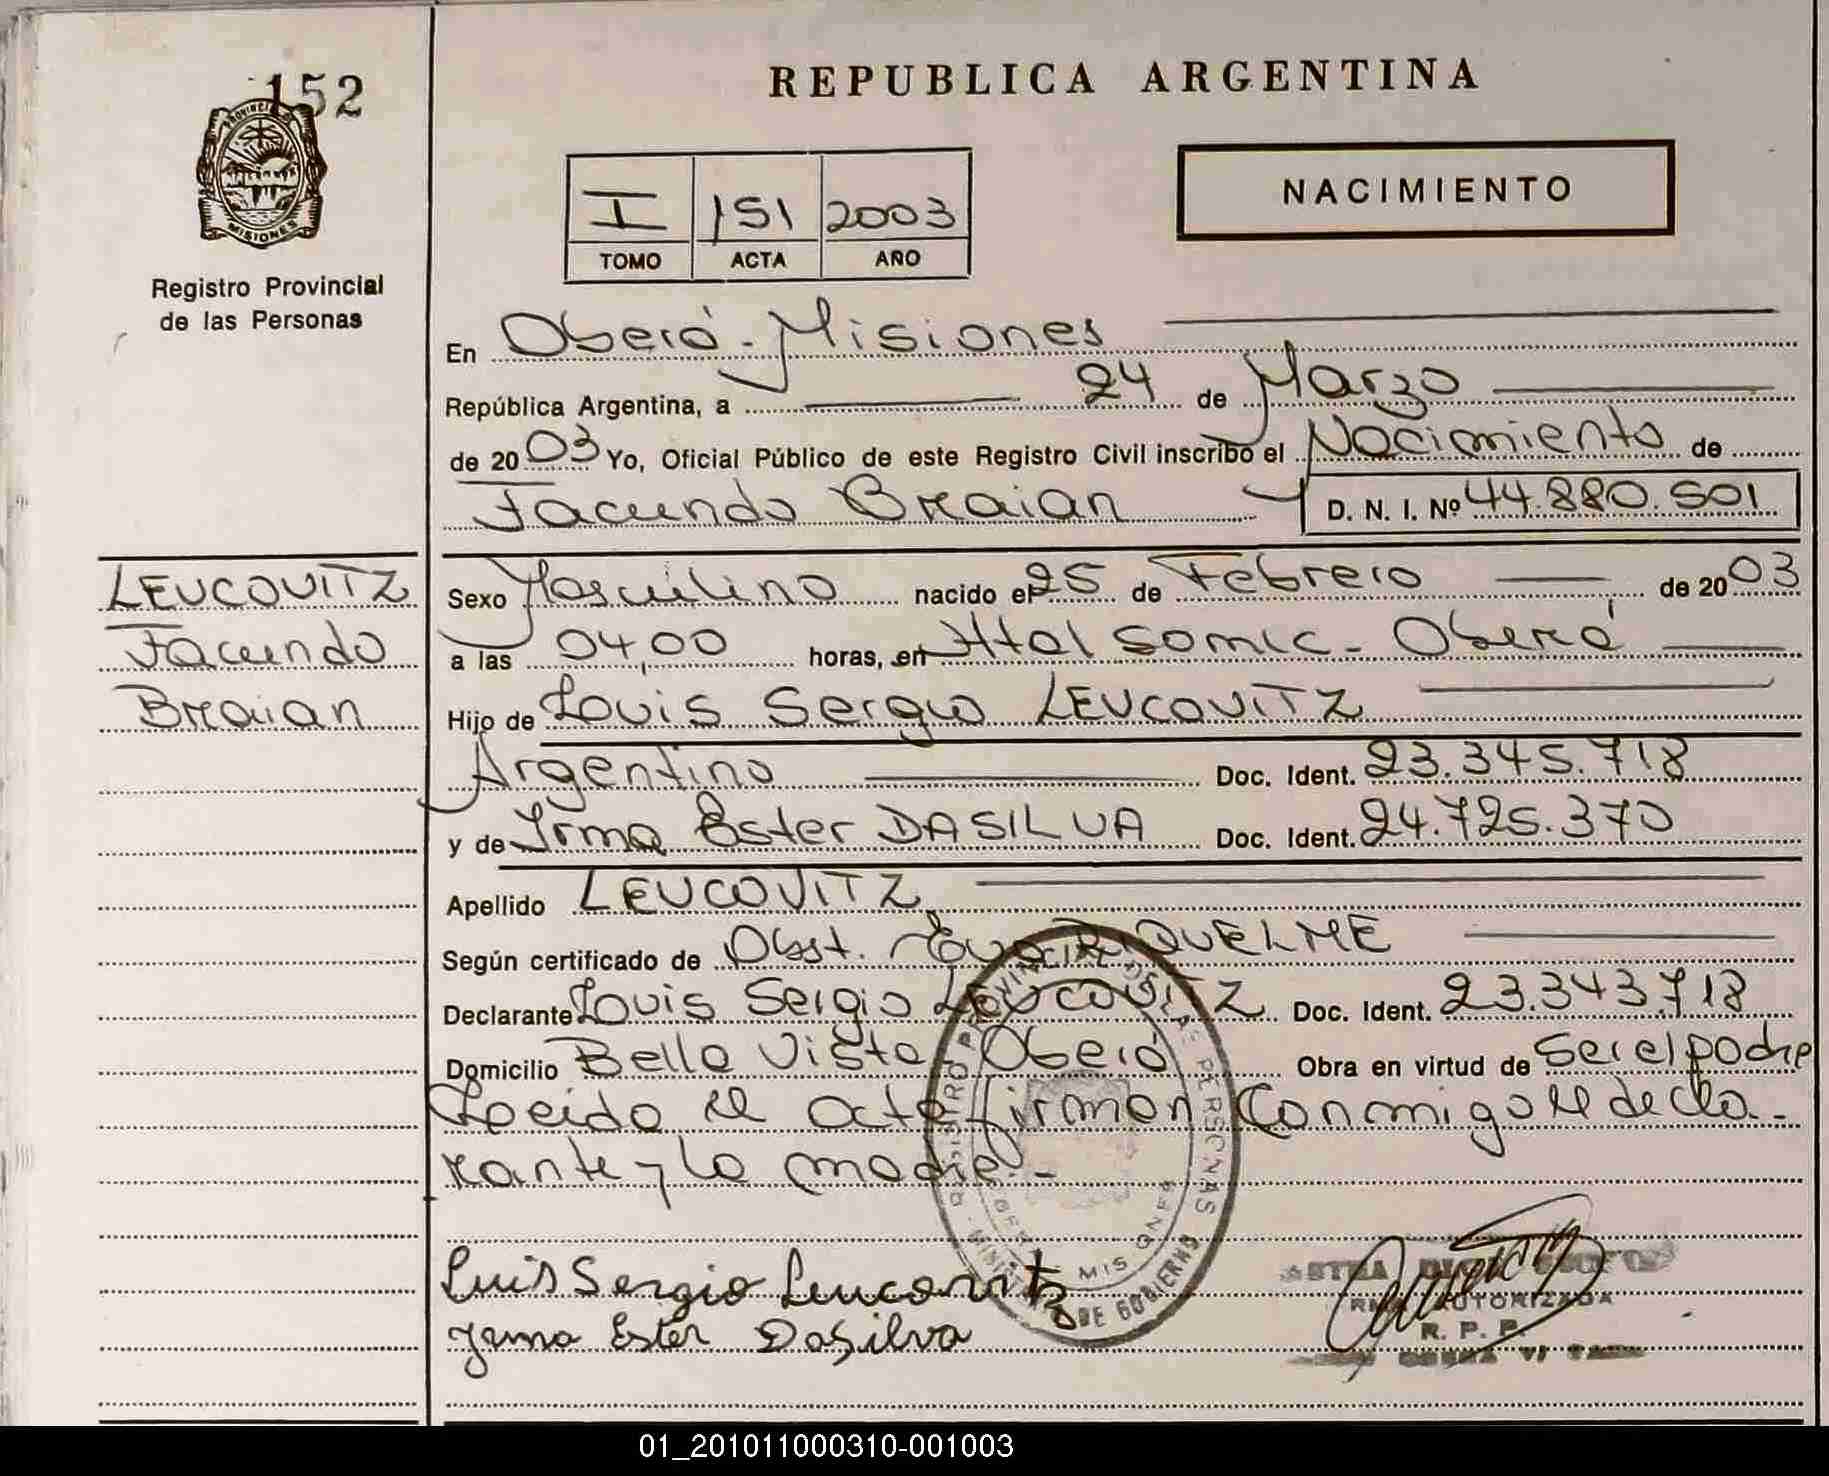 152
REPUBLICA ARGENTINA
PROVINCIA DE
MISIONES
Registro Provincial
de las Personas
I 151 2003
TOMO ACTA AÑO
NACIMIENTO
En Oberá - Misiones
República Argentina, a 24 de Marzo
de 2003 Yo, Oficial Público de este Registro Civil inscribo el Nacimiento de
Facundo Braian D. N. I. Nº 44.880.501
LEUCOVITZ
Facundo
Braian
Sexo Masculino nacido el 25 de Febrero de 2003
a las 04,00 horas, en Htal Samic - Oberá
Hijo de Louis Sergio LEUCOVITZ
Argentino Doc. Ident. 23.345.718
y de Irma Ester DASILVA Doc. Ident. 24.725.370
Apellido LEUCOVITZ
Según certificado de Obst. Eva RIQUELME
Declarante Louis Sergio LEUCOVITZ Doc. Ident. 23.343.718
Domicilio Bella Vista Oberá Obra en virtud de ser el padre
Leida el acta firman conmigo el decla-
rante y la madre.-
REGISTRO PROVINCIAL DE LAS PERSONAS
MISIONES
DE GOBIERNO
Luis Sergio Leucovitz
Irma Ester DaSilva
AUTORIZADA
R. P. P.
01_201011000310-001003